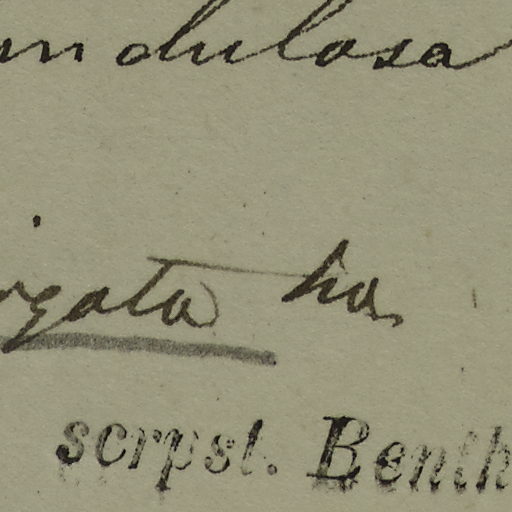 ndulosa
irgata ha
scrpst. Benth